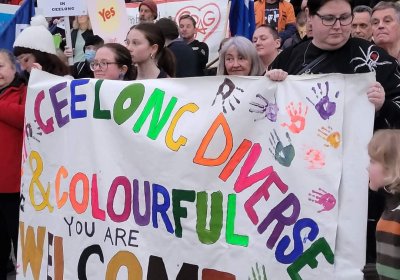 IN GEELONG
Yes
GEELONG DIVERSE
& COLOURFUL
YOU ARE
WELCOME